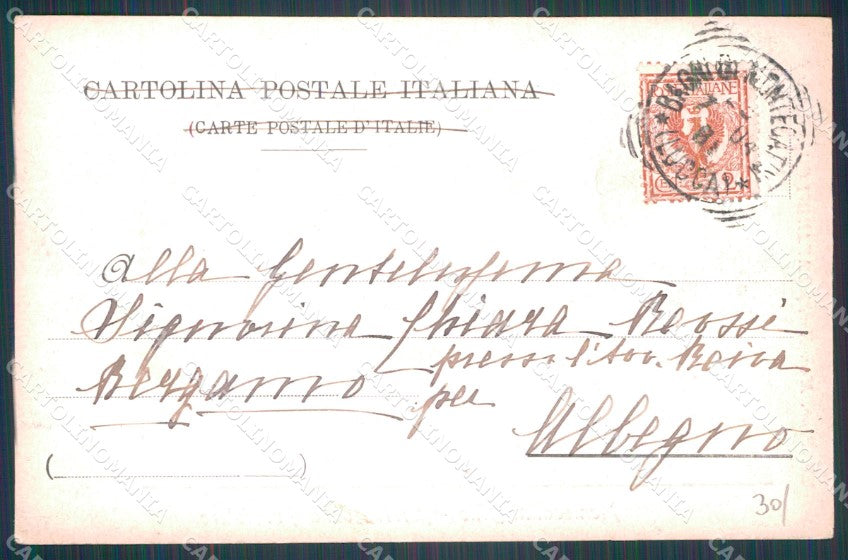 CARTOLINA POSTALE ITALIANA
(CARTE POSTALE D'ITALIE)
BAGNI DI MONTECATINI
(LUCCA)
Alla Gentilissima
Signorina Chiara
presso l'Avv.
Bergamo per
Albegno
30/
CARTOLINOMANIA